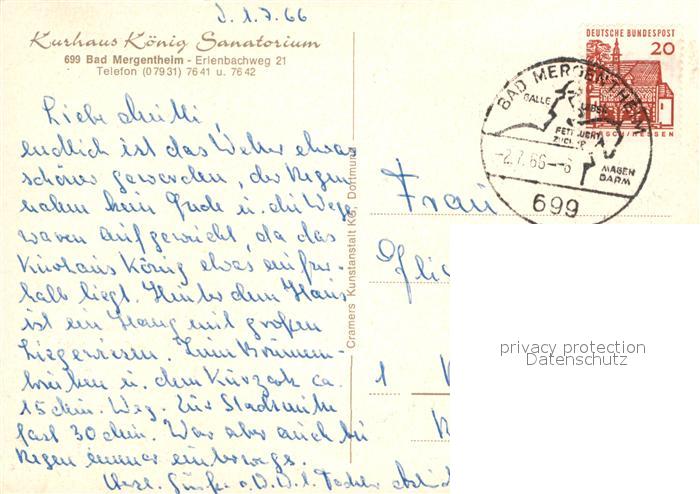 D. 1.7.66
Kurhaus König Sanatorium
699 Bad Mergentheim - Erlenbachweg 21
Telefon (07931) 7641 u. 7642
Liebe Mutti,
endlich ist das Wetter etwas
schöner geworden, der Regen
nahm kein Ende u. die Wege
waren aufgeweicht, da das
Kurhaus König etwas außer-
halb liegt. Hinter dem Haus
ist ein Hang mit großen
Liegewiesen. Zum Brunnen-
trinken u. dem Kurpark ca.
15 Min. Weg. Zur Stadtmitte
fast 30 Min. War aber auch bei
Regen immer unterwegs.
Herzl. Grüße
Cramers Kunstanstalt KG. Dortmund
DEUTSCHE BUNDESPOST
20
BAD MERGENTHEIM
GALLE LEBER
FETTSUCHT
ZUCKER
MAGEN
DARM
-2.7.66--6
699
Frau
1
privacy protection
Datenschutz